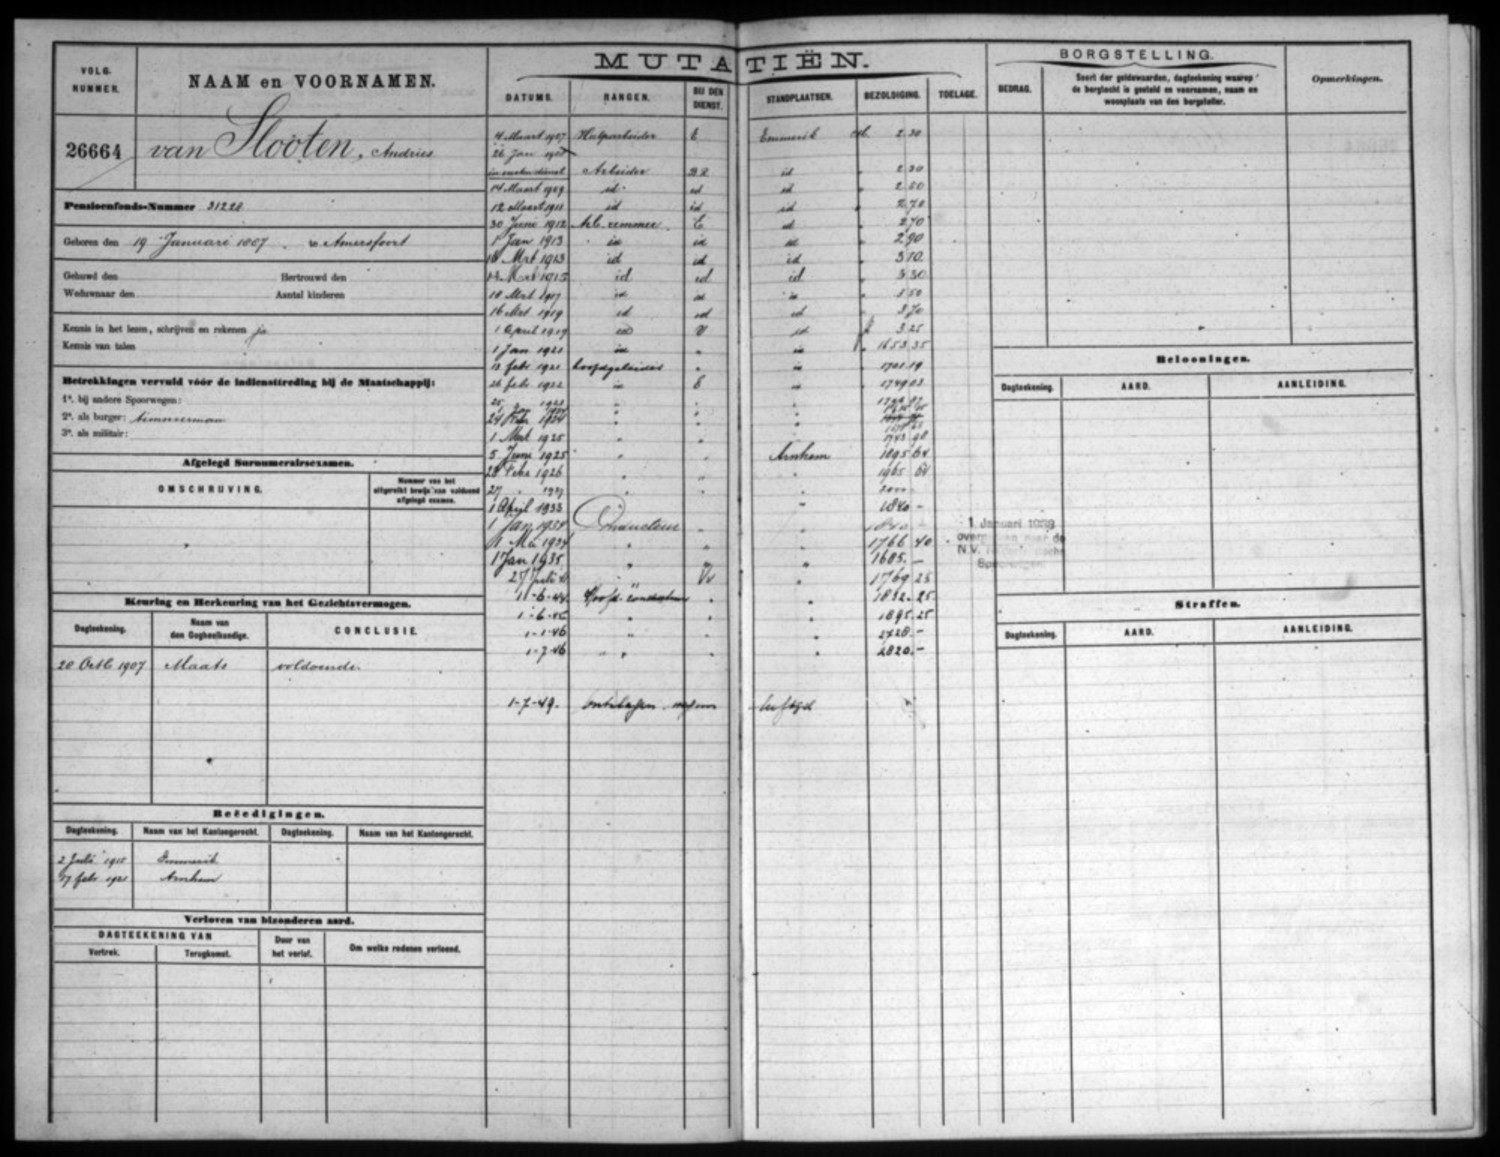 VOLG. NUMMER.
NAAM en VOORNAMEN.
26664 van Slooten, Andries
Pensioenfonds-Nummer 31228
Geboren den 19 Januari 1887 te Amersfoort
Gehuwd den Hertrouwd den
Weduwnaar den Aantal kinderen
Kennis in het lezen, schrijven en rekenen ja
Kennis van talen
Betrekkingen vervuld vóór de indiensttreding bij de Maatschappij:
1º. bij andere Spoorwegen:
2º. als burger: timmerman
3º. als militair:
Afgelegd Surnumerairsexamen.
OMSCHRIJVING.
Nummer van het uitgereikt bewijs van voldoend afgelegd examen.
Keuring en Herkeuring van het Gezichtsvermogen.
Dagteekening. Naam van den Oogheelkundige. CONCLUSIE.
20 Octb 1907 Maats voldoende
Beëedigingen.
Dagteekening. Naam van het Kantongerecht. Dagteekening. Naam van het Kantongerecht.
2 Juli 1915 Emmerik
17 febr 1921 Arnhem
Verloven van bizonderen aard.
DAGTEEKENING VAN
Vertrek. Terugkomst.
Duur van het verlof.
Om welke redenen verleend.
MUTATIËN.
DATUMS. RANGEN. BIJ DEN DIENST. STANDPLAATSEN. BEZOLDIGING. TOELAGE.
4 Maart 1907 Hulparbeider E Emmerik 2.30
26 Jan
in vasten dienst Arbeider id 2 30
14 Maart 1909 id id id 2 50
12 Maart 1911 id id id 2 70
30 Juni 1912 Arb. remmer E id 2 70
1 Jan 1913 id id id 2 90
16 Mrt 1913 id id id 3 10
14 Mrt 1915 id id id 3 30
18 Mrt 1917 id id id 3 50
16 Mrt 1919 id id id 3 70
1 April 1919 id V id 3 25
1 Jan 1920 id " id 1653 35
12 febr 1921 hoofdgeleider " id 1701 19
26 febr 1922 id E id 1749 03
25 " 1923
24 Febr 1924
1 Mrt 1925 " " " 1743 98
5 Juni 1925 " " Arnhem 1895 64
28 Febr 1926 " " " 1965 64
27 " 2000
1 April 1933 " 1840 -
1 Jan 1934 Conducteur " " 1840 -
1 Mei 1934 " " " 1766 40
1 Jan 1935 " " " 1685.-
27 Juli " Vv " 1769 25
1-6-44 Hoofd-conducteur " " 1832.25
1-6-45 " " " 1895.25
1-1-46 " " " 2728.-
1-7-46 " " " 2820.-
1-7-49. Ontslagen leeftijd
1 Januari 1938
overgegaan naar de
N.V. Nederlandsche
Spoorwegen
BORGSTELLING.
BEDRAG.
Soort der geldswaarden, dagteekening waarop de borgtocht is gesteld en voornamen, naam en woonplaats van den borgsteller.
Opmerkingen.
Belooningen.
Dagteekening. AARD. AANLEIDING.
Straffen.
Dagteekening. AARD. AANLEIDING.